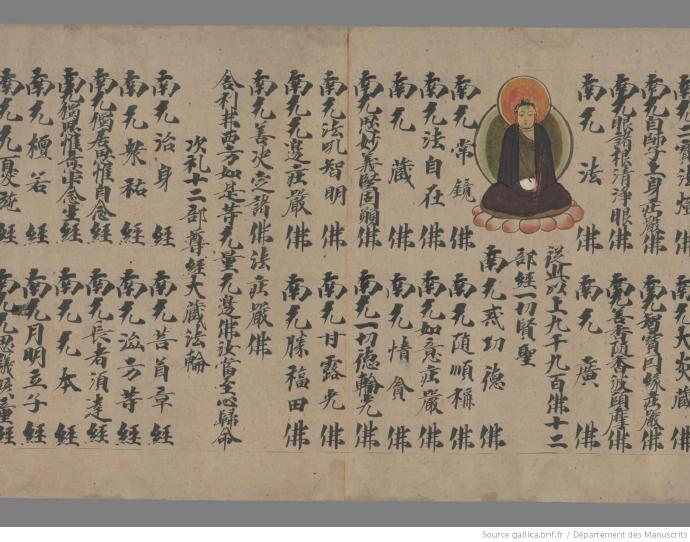 南无二寶法燈佛 南无大炎藏佛
南无自師子上身莊嚴佛 南无智寶因緣莊嚴佛
南无眼諸根清淨眼佛 南无善香隨香波頭摩佛
南无法佛 南无廣佛
從此以上九千九百佛十二
部經一切賢聖
南无惑功德佛
南无常鏡佛 南无隨順稱佛
南无法自在佛 南无如意莊嚴佛
南无藏佛 南无惰貪佛
南无思妙義堅固願佛 南无一切德輪光佛
南无法吼智明佛 南无甘露光佛
南无无邊莊嚴佛 南无勝福田佛
南无善決定諸佛法莊嚴佛
舍利弗西方如是等无量无邊佛汝當至心歸命
次礼十二部尊經大藏法輪
南无治身經 南无菩首章經
南无眾祐經 南无流方等經
南无獨居思惟自念經 南无長者須達經
南无獨思惟意中念生經 南无无本經
南无檀若經 南无月明童子經
南无无憂 經 南无思 經
Source gallica.bnf.fr / Département des Manuscrits